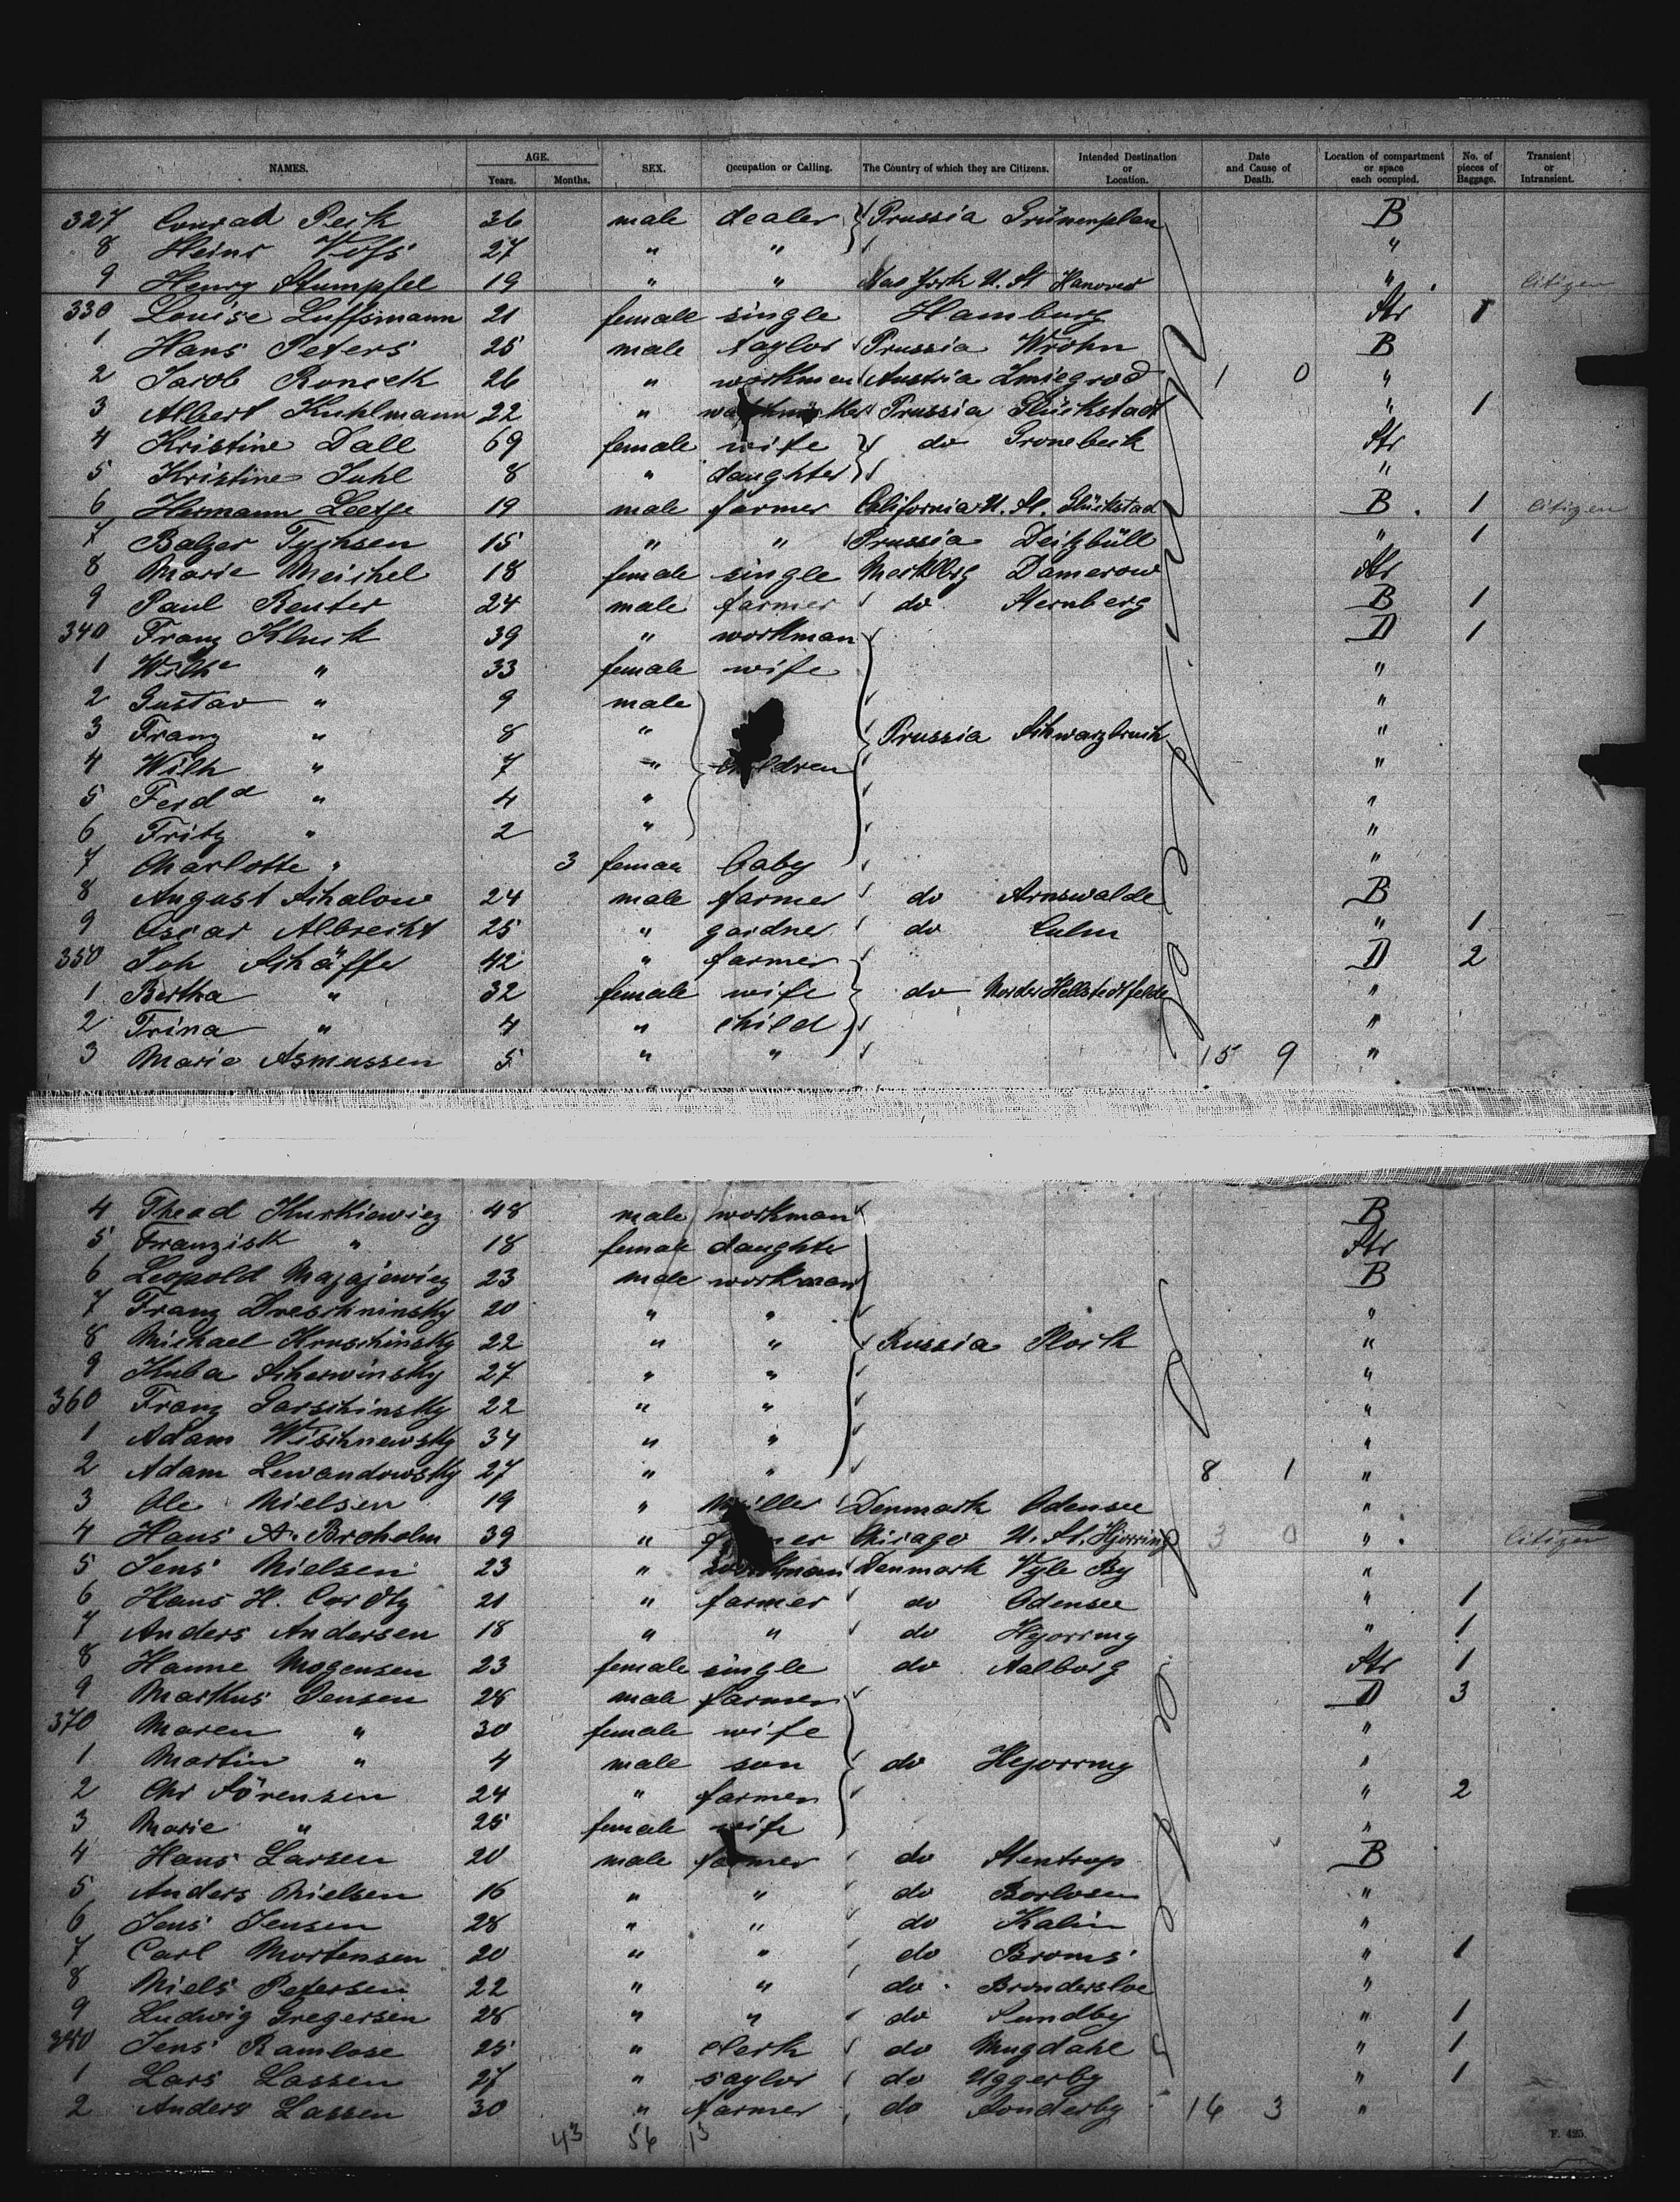 NAMES. AGE. Years. Months. SEX. Occupation or Calling. The Country of which they are Citizens. Intended Destination or Location. Date and Cause of Death. Location of compartment or space each occupied. No. of pieces of Baggage. Transient or Intransient.
327 Conrad Peik 36 male dealer Prussia Grünenplan B
8 Heinr Voss 27 " " "
9 Henry Stumpfel 19 " " New York U. St Hanover " Citizen
330 Louise Luffsmann 21 female single Hamburg Str 1
1 Hans Peters 25 male taylor Prussia Wrohn B
2 Jacob Ronsek 26 " workman Austria Zmiegrod 1 0 "
3 Albert Kuhlmann 22 " Prussia Glückstadt " 1
4 Kristine Dall 69 female wife do Gronebeck Str
5 Kristine Juhl 8 " daughter "
6 Hermann Leetge 19 male farmer California U. St. Glückstad B 1 Citizen
7 Balzer Tychsen 15 " " Prussia Deizbüll " 1
8 Marie Meichel 18 female single Mecklbrg Damerow Str
9 Paul Reuter 24 male farmer do Sternberg B 1
340 Franz Kluck 39 " workman D 1
1 Wilhe " 33 female wife "
2 Gustav " 9 male "
3 Franz " 8 " Prussia Schwarzbruch "
4 Wilh " 7 " children "
5 Ferdd " 4 " "
6 Fritz " 2 " "
7 Charlotte " 3 female baby "
8 August Schalow 24 male farmer do Arnswalde B
9 Oscar Albrecht 25 " gardner do Culm " 1
350 Joh Schäffer 42 " farmer D 2
1 Bertha " 32 female wife do Norder Hellstedtfelde "
2 Trina " 4 " child "
3 Marie Asmussen 5 " " 15 9 "
4 Theod Kurkiewicz 48 male workman B
5 Franzisk " 18 female daughter Str
6 Leopold Mazajewicz 23 male workman B
7 Franz Dreschninsky 20 " " "
8 Michael Kruschinsky 22 " " Russia Plock "
9 Kuba Scherwinsky 27 " " "
360 Franz Garschinsky 22 " " "
1 Adam Wischnewsky 34 " " "
2 Adam Lewandowsky 27 " " 8 1 "
3 Ole Nielsen 19 " Miller Denmark Odensee "
4 Hans A. Broholm 39 " farmer Chicago U. St. Hjorring 3 0 " Citizen
5 Jens Nielsen 23 " workman Denmark Vyle By "
6 Hans H. Cordtz 21 " farmer do Odensee " 1
7 Anders Andersen 18 " " do Hyorring " 1
8 Hanne Mogensen 23 female single do Aalborg Str 1
9 Markus Jensen 28 male farmer D 3
370 Maren " 30 female wife "
1 Martin " 4 male son do Hejorring "
2 Chr Sörensen 24 " farmer " 2
3 Marie " 25 female wife "
4 Hans Larsen 20 male farmer do Stentrup B
5 Anders Nielsen 16 " " do Borlosen "
6 Jens Jensen 28 " " do Kalin "
7 Carl Mortensen 20 " " do Broms " 1
8 Niels Petersen 22 " " do Brondersloe "
9 Ludwig Gregersen 28 " " do Sundby " 1
380 Jens Ramlose 25 " clerk do Mugdahl " 1
1 Lars Lassen 27 " saylor do Uggerby " 1
2 Anders Lassen 30 " farmer do Sonderby 16 3 "
43 56 13
F. 425.